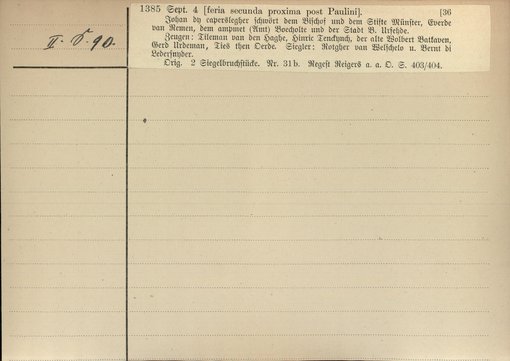 1385 Sept. 4 [feria secunda proxima post Paulini]. [36
Johan dy caperslegher schwört dem Bischof und dem Stifte Münster, Everde
van Remen, dem ampmet (Amt) Boecholte und der Stadt B. Urfehde.
Zeugen: Tileman van den Haghe, Hinric Tenckynch, der alte Wolbert Batkaven,
Gerd Urdeman, Ties then Oerde. Siegler: Rotgher van Welschelo u. Bernt di
Ledersnyder.
Orig. 2 Siegelbruchstücke. Nr. 31b. Regest Reigers a. a. O. S. 403/404.
II. S. 90.